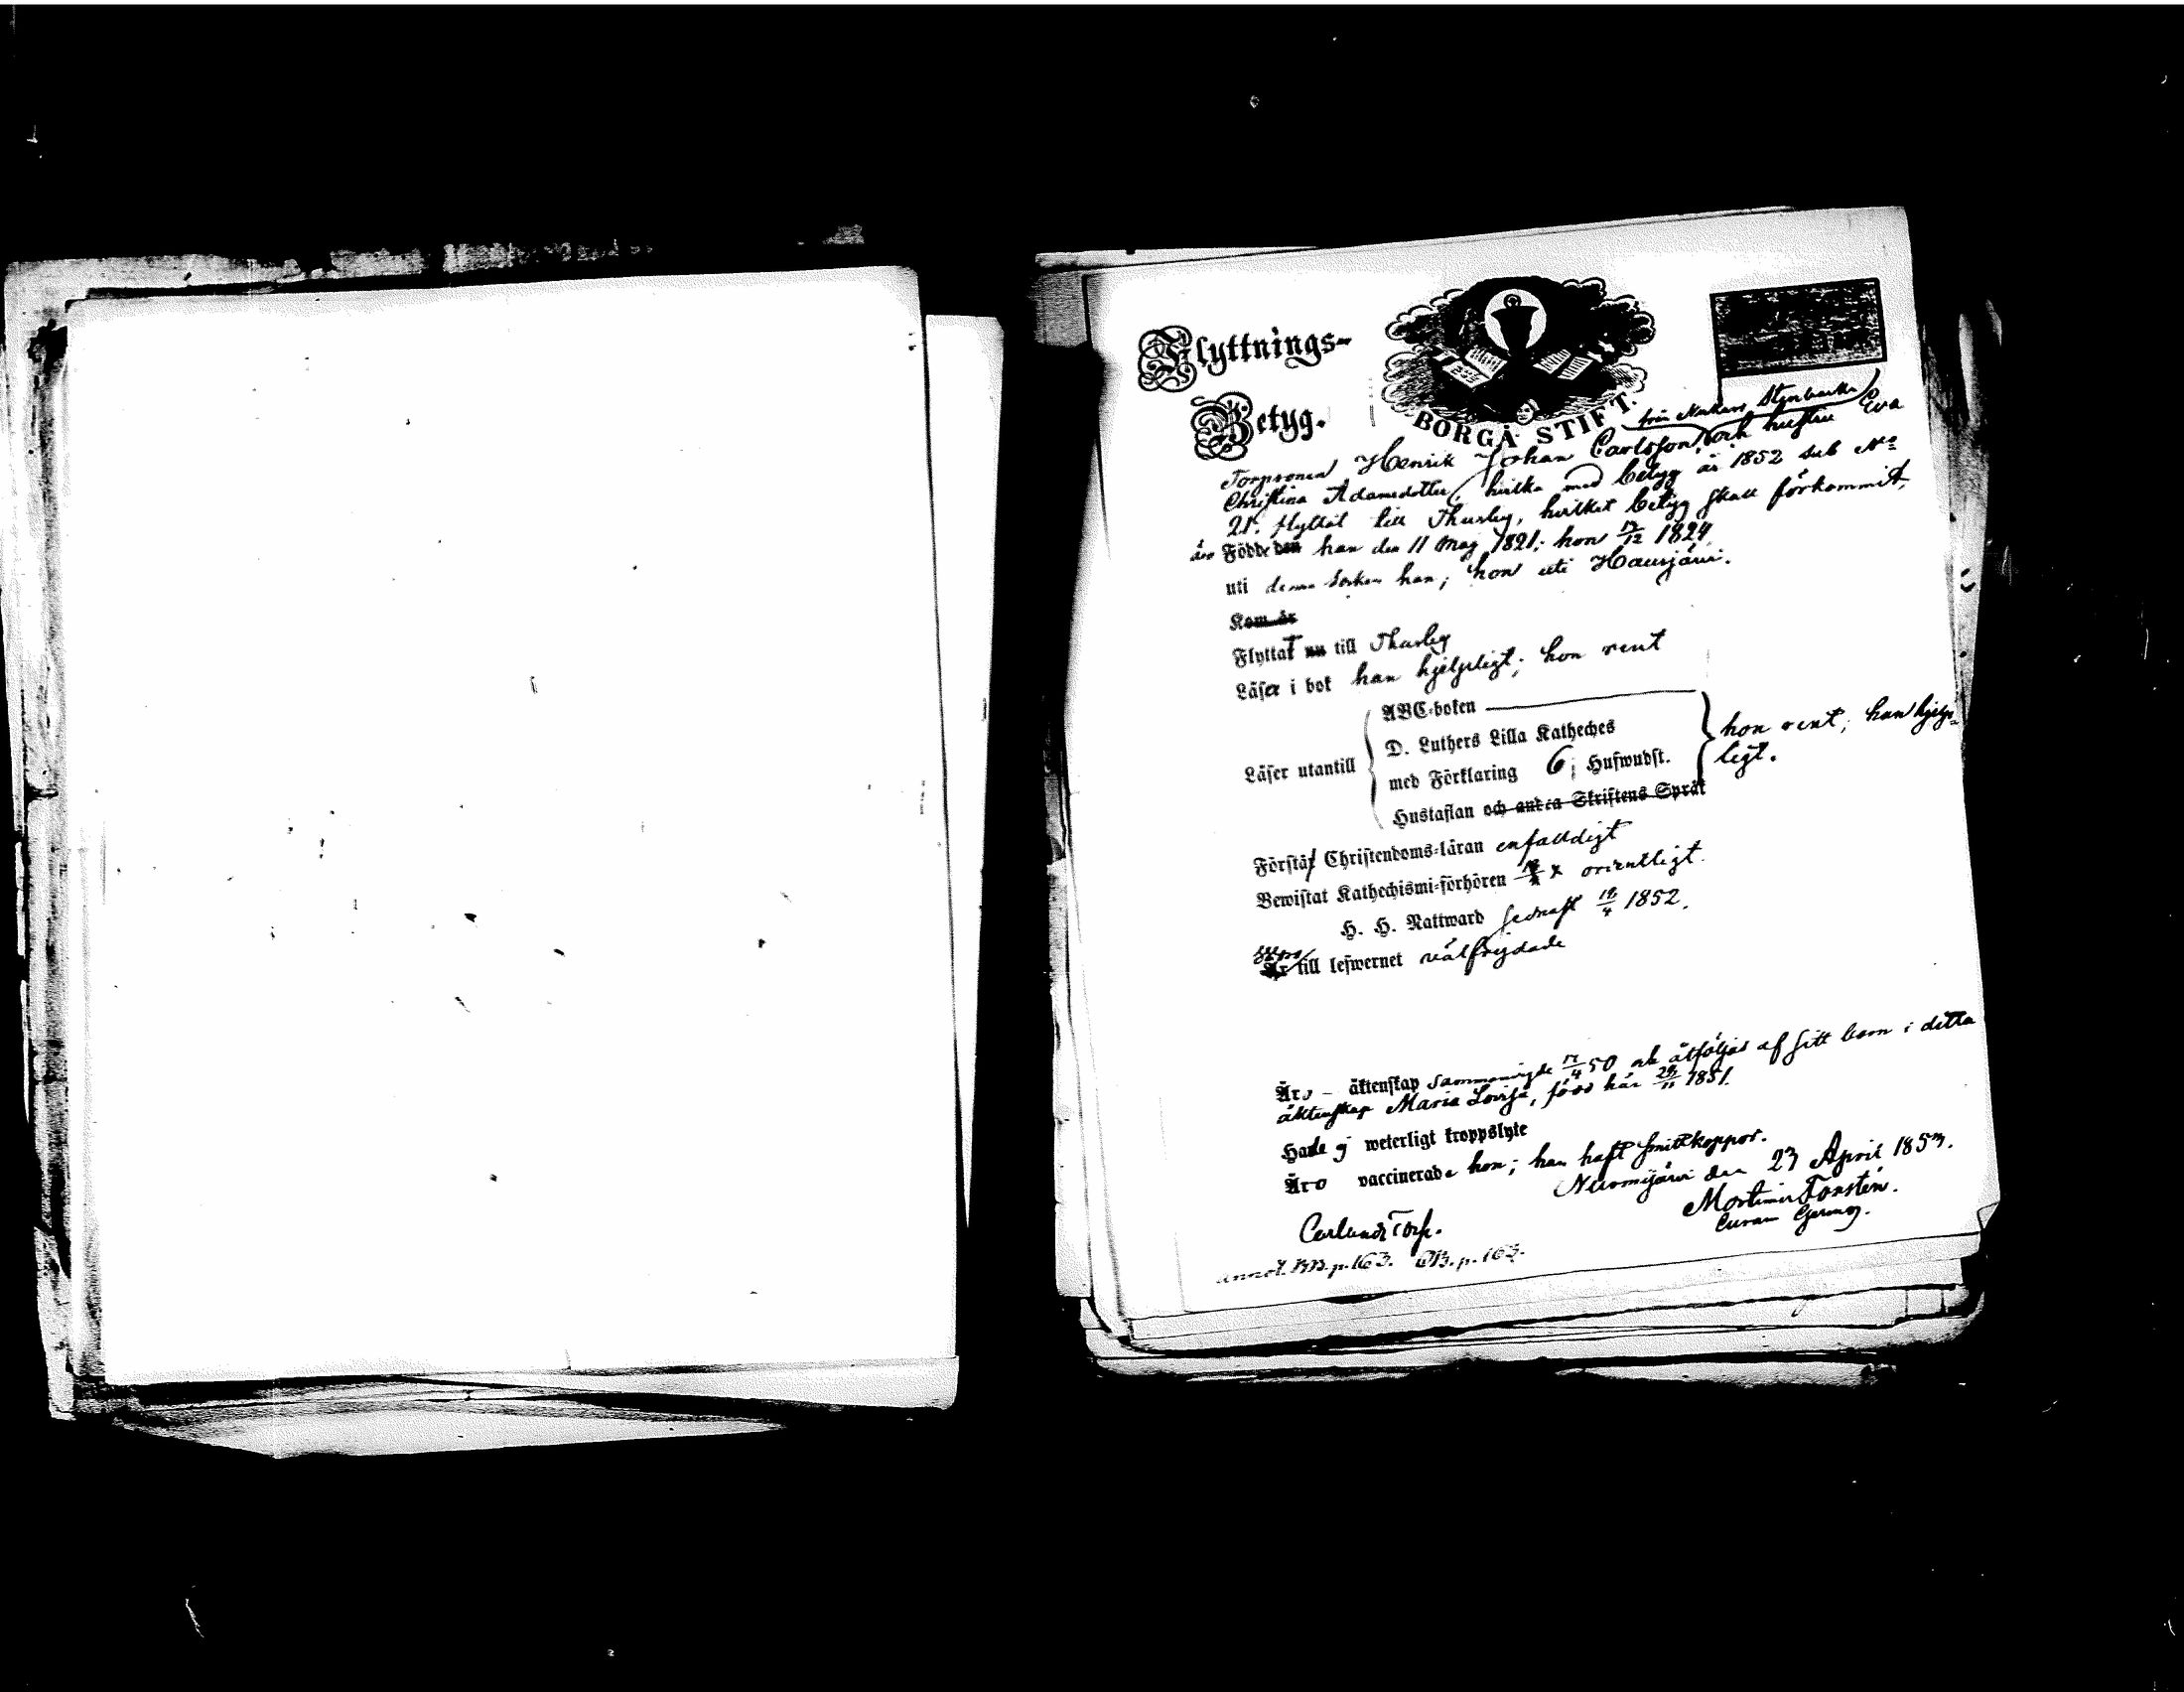 Flyttnings-
Betyg.
BORGÅ STIFT.
från Stenbacka
Torparen Henrik Johan Carlsson och hustru Eva
Christina Adamsdotter, hvilka med betyg år 1852 sub No
21. flyttat till Thusby, hvilket betyg skall förkommit,
äro Födde den han den 11 Maj 1821; hon 17/12 1824
uti denna socken han; hon uti Hausjärvi.
Kom år
Flyttat nu till Thusby
Läsa i bok han hjelpligt; hon rent
ABC-boken
D. Luthers Lilla Katheches
Läser utantill
med Förklaring 6; Hufwudst.
Hustaflan och andra Skriftens Språk
hon rent; han hjelp-
ligt.
Förstå Christendoms-läran enfaldigt
Bewistat Kathechismi-förhören ordentligt.
H. H. Nattward sednast 18/4 1852.
Äro till lefwernet välfrejdade
Äro - äktenskap sammanvigde 12/4 50 och åtföljas af sitt barn i detta
äktenskap Maria Lovisa, född här 29/11 1851.
Hade ej weterligt kroppslyte
Äro vaccinerade hon; han haft smittkoppor.
Nurmijärvi den 23 April 1853.
Mortimer Forstén.
Curam Gerens.
Carlunds Torp.
annot. BB. p. 163. CB. p. 163.